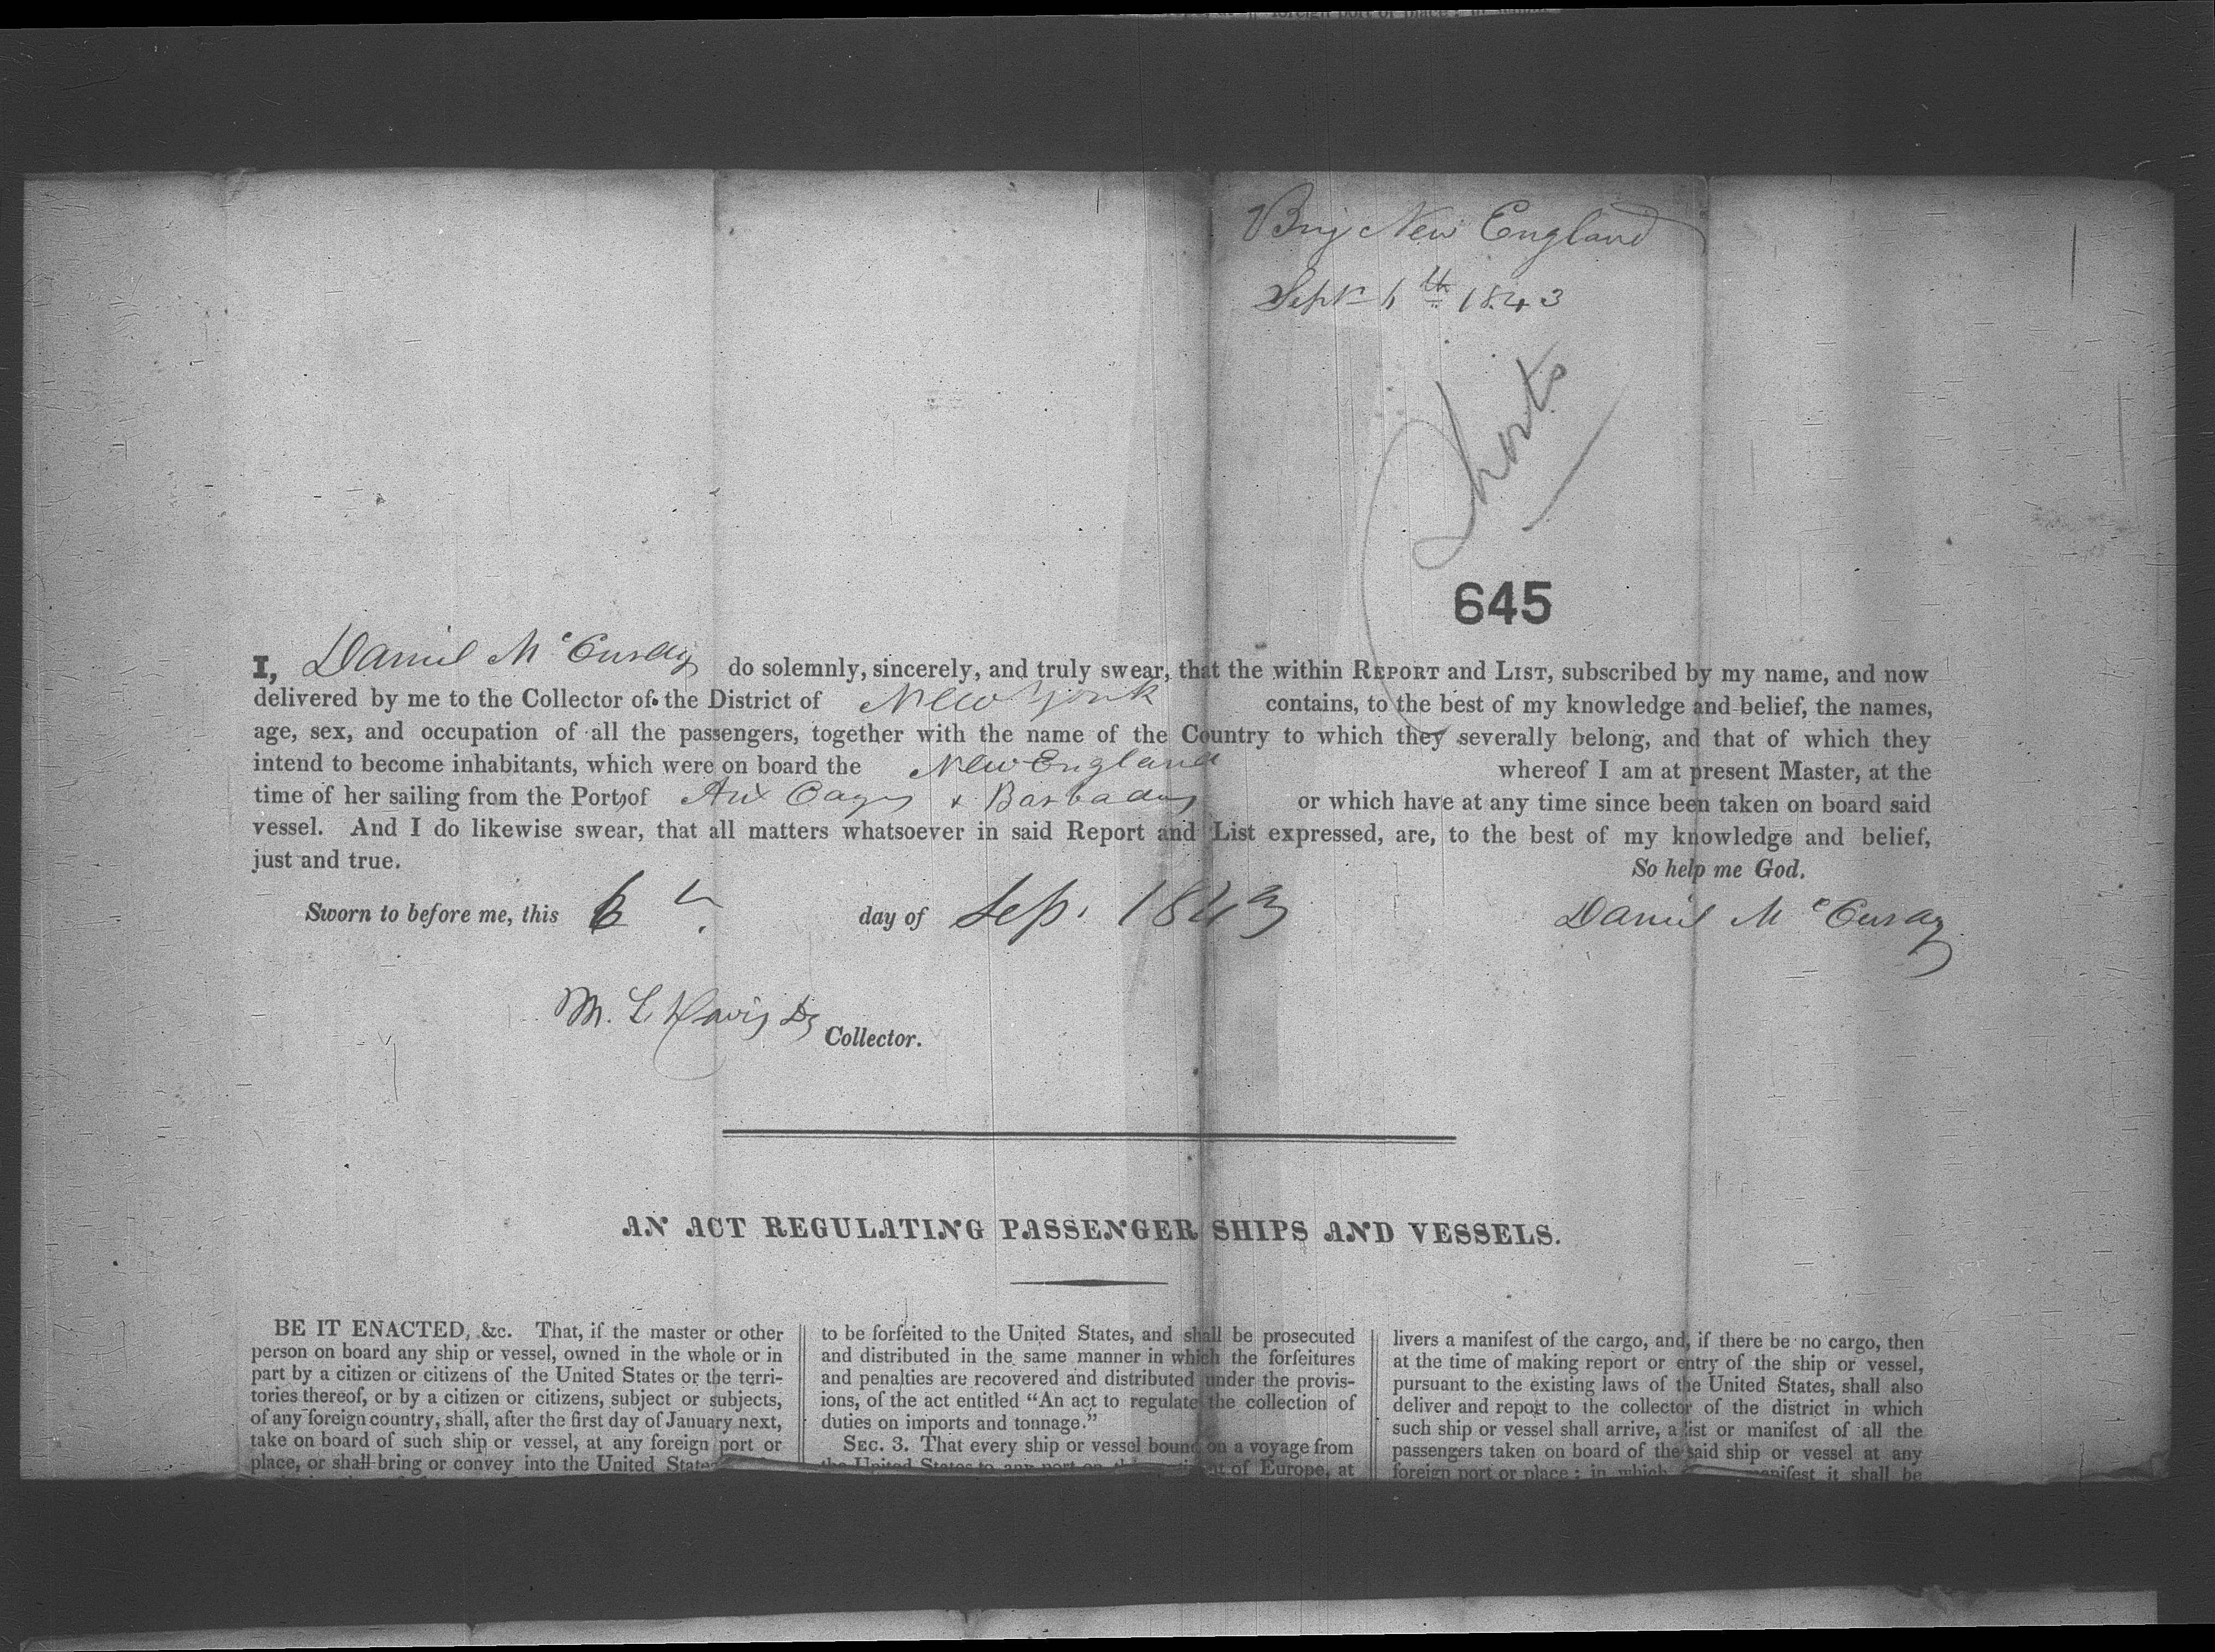 Brig New England
Sept 6th 1843
Shorts
645
I, Daniel McCurdy do solemnly, sincerely, and truly swear, that the within REPORT and LIST, subscribed by my name, and now
delivered by me to the Collector of the District of New York contains, to the best of my knowledge and belief, the names,
age, sex, and occupation of all the passengers, together with the name of the Country to which they severally belong, and that of which they
intend to become inhabitants, which were on board the New England whereof I am at present Master, at the
time of her sailing from the Port of Aux Cayes & Barbadoes or which have at any time since been taken on board said
vessel. And I do likewise swear, that all matters whatsoever in said Report and List expressed, are, to the best of my knowledge and belief,
just and true. So help me God.
Sworn to before me, this 6th day of Sep. 1843 Daniel McCurdy
M. L. Davis Dy Collector.
AN ACT REGULATING PASSENGER SHIPS AND VESSELS.
BE IT ENACTED, &c. That, if the master or other
person on board any ship or vessel, owned in the whole or in
part by a citizen or citizens of the United States or the terri-
tories thereof, or by a citizen or citizens, subject or subjects,
of any foreign country, shall, after the first day of January next,
take on board of such ship or vessel, at any foreign port or
place, or shall bring or convey into the United States
to be forfeited to the United States, and shall be prosecuted
and distributed in the same manner in which the forfeitures
and penalties are recovered and distributed under the provis-
ions, of the act entitled “An act to regulate the collection of
duties on imports and tonnage.”
SEC. 3. That every ship or vessel bound on a voyage from
the United States to any port on the of Europe, at
livers a manifest of the cargo, and, if there be no cargo, then
at the time of making report or entry of the ship or vessel,
pursuant to the existing laws of the United States, shall also
deliver and report to the collector of the district in which
such ship or vessel shall arrive, a list or manifest of all the
passengers taken on board of the said ship or vessel at any
foreign port or place; in which manifest it shall be